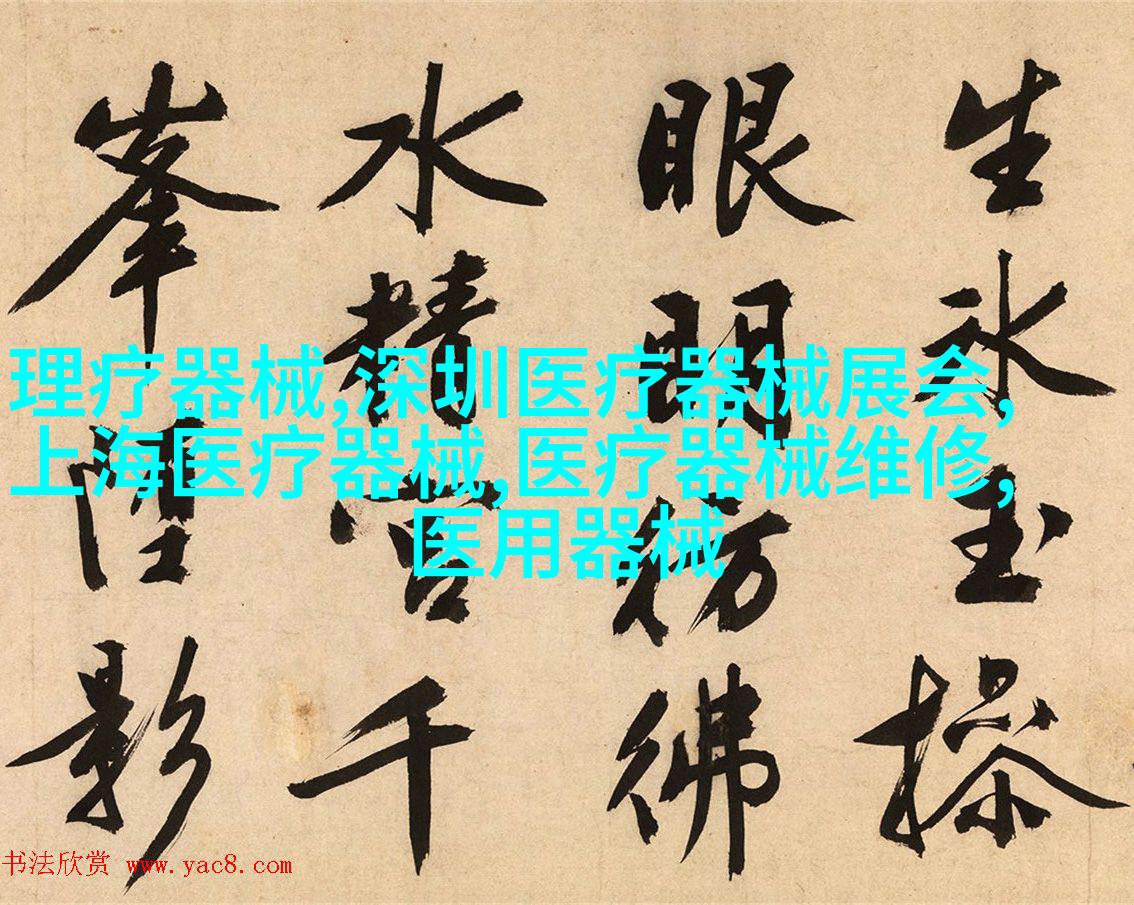 生冰玉操
眼明彷彿
水精宮千
峯影
理疗器械,深圳医疗器械展会,
上海医疗器械,医疗器械维修,
医用器械
书法欣赏 www.yac8.com